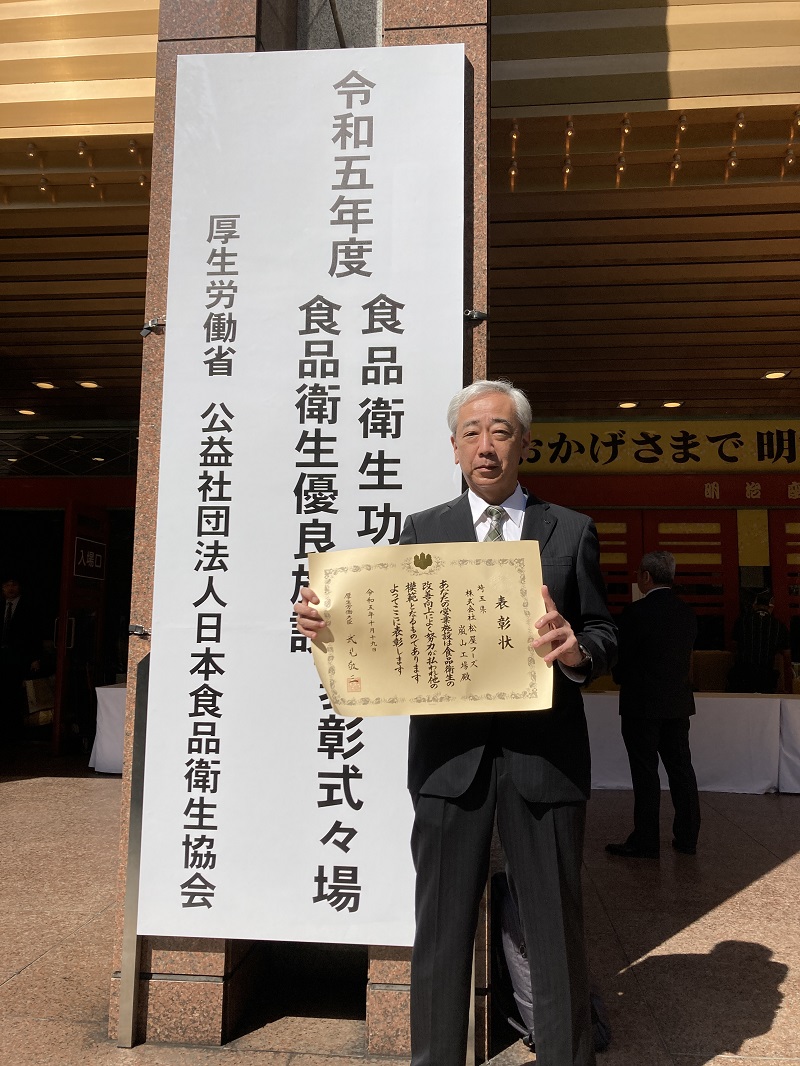 令和五年度
食品衛生功
食品衛生優良施設
表彰式々場
厚生労働省 公益社団法人日本食品衛生協会
おかげさまで 明
明治座
入場口
表彰状
埼玉県
株式会社松屋フーズ 嵐山工場殿
あなたの営業施設は食品衛生の
改善向上によく努力が払われ他の
模範となるものであります
よってここに表彰します
令和五年十月十九日
厚生労働大臣 武見敬三